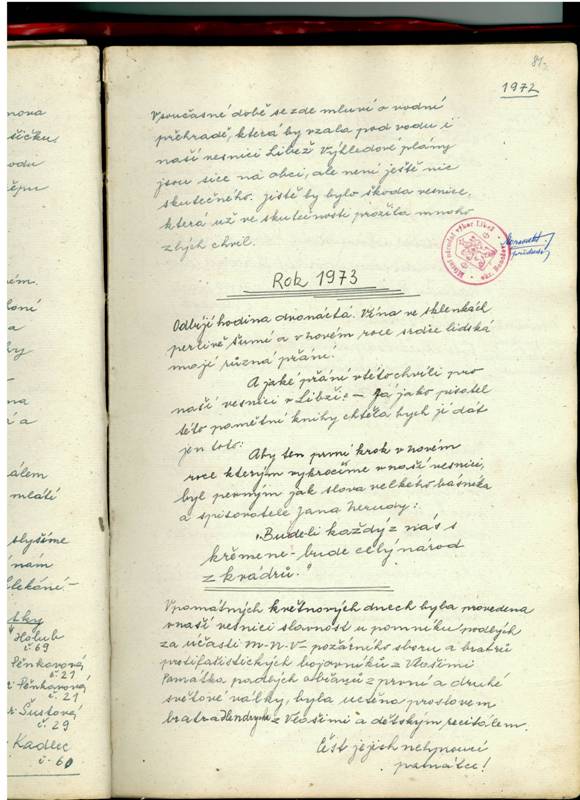 nova
81.
1972
V současné době se zde mluví o vodní
přehradě, která by vzala pod vodu i
naší vesnici Libež. Výhledové plány
jsou sice na obci, ale není ještě nic
skutečného. Jistě by bylo škoda vesnice,
která už ve skutečnosti prožila mnoho
zlých chvil.
Místní národní výbor Libež
předseda
Rok 1973
Odbíjí hodina dvanáctá. Vína ve sklenkách
perlivě šumí a v novém roce srdce lidská
mají různá přání.
A jaké přání v této chvíli pro
naší vesnici v Libži? - Já jako pisatel
této pamětní knihy chtěla bych jí dát
jen toto:
Aby ten první krok v novém
roce kterým vykročíme v naší vesnici,
byl pevným jak slova velkého básníka
a spisovatele Jana Nerudy:
"Budeli každý z nás s
křemene - bude celý národ
z kvádrů."
V památných květnových dnech byla provedena
v naší vesnici slavnost u pomníku padlých
za účasti M-N-V- požárního sboru a bratrů
protifašistických bojovníků z Vlašimi
Památka padlých občanů z první a druhé
světové války, byla uctěna proslovem
bratra z Vlašimi a dětským recitálem.
Čest jejich nehynoucí
památce!
ném.
álem
mláti
slyšíme
nám
lekání -
Holub
č. 69
Pěnkavová
č. 21
Pěnkavová
č. 21
Šustová
č. 29
Kadlec
č. 60